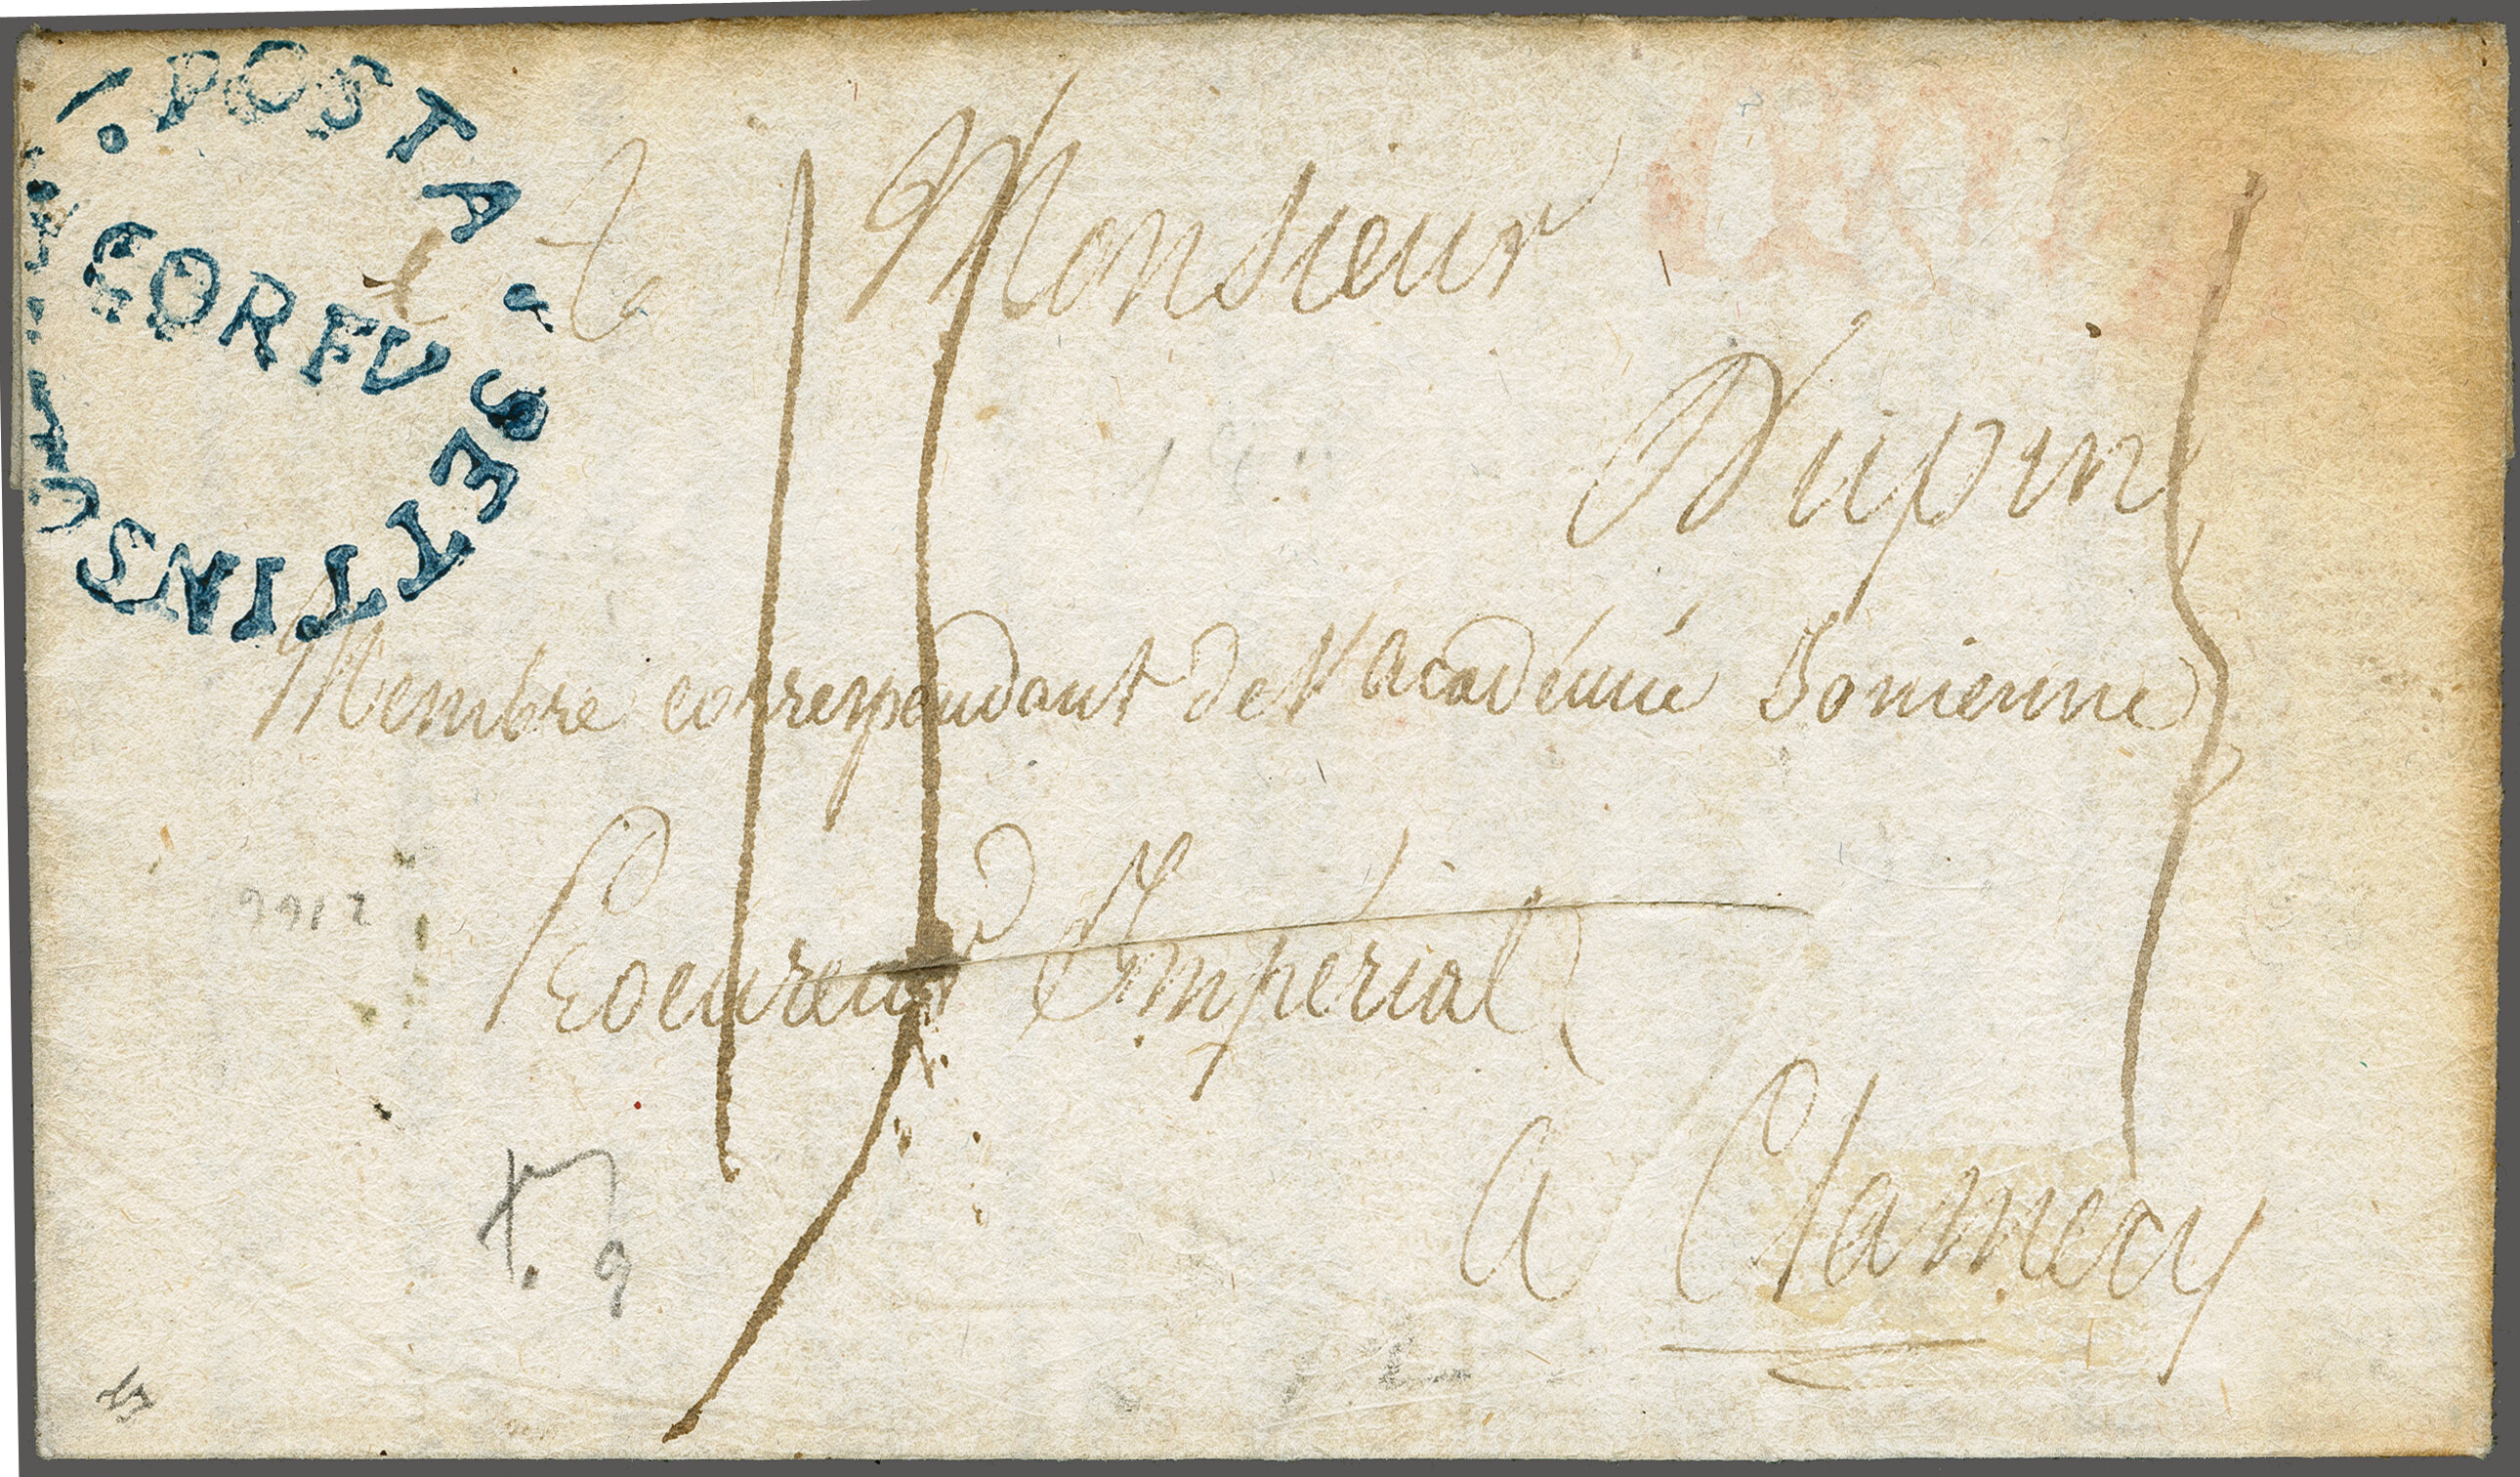 POSTA . SETTINSU
CORFU
A Monsieur
Dupin
Membre correspondant de l'académie Ionienne
Procureur Impérial
a Clamecy